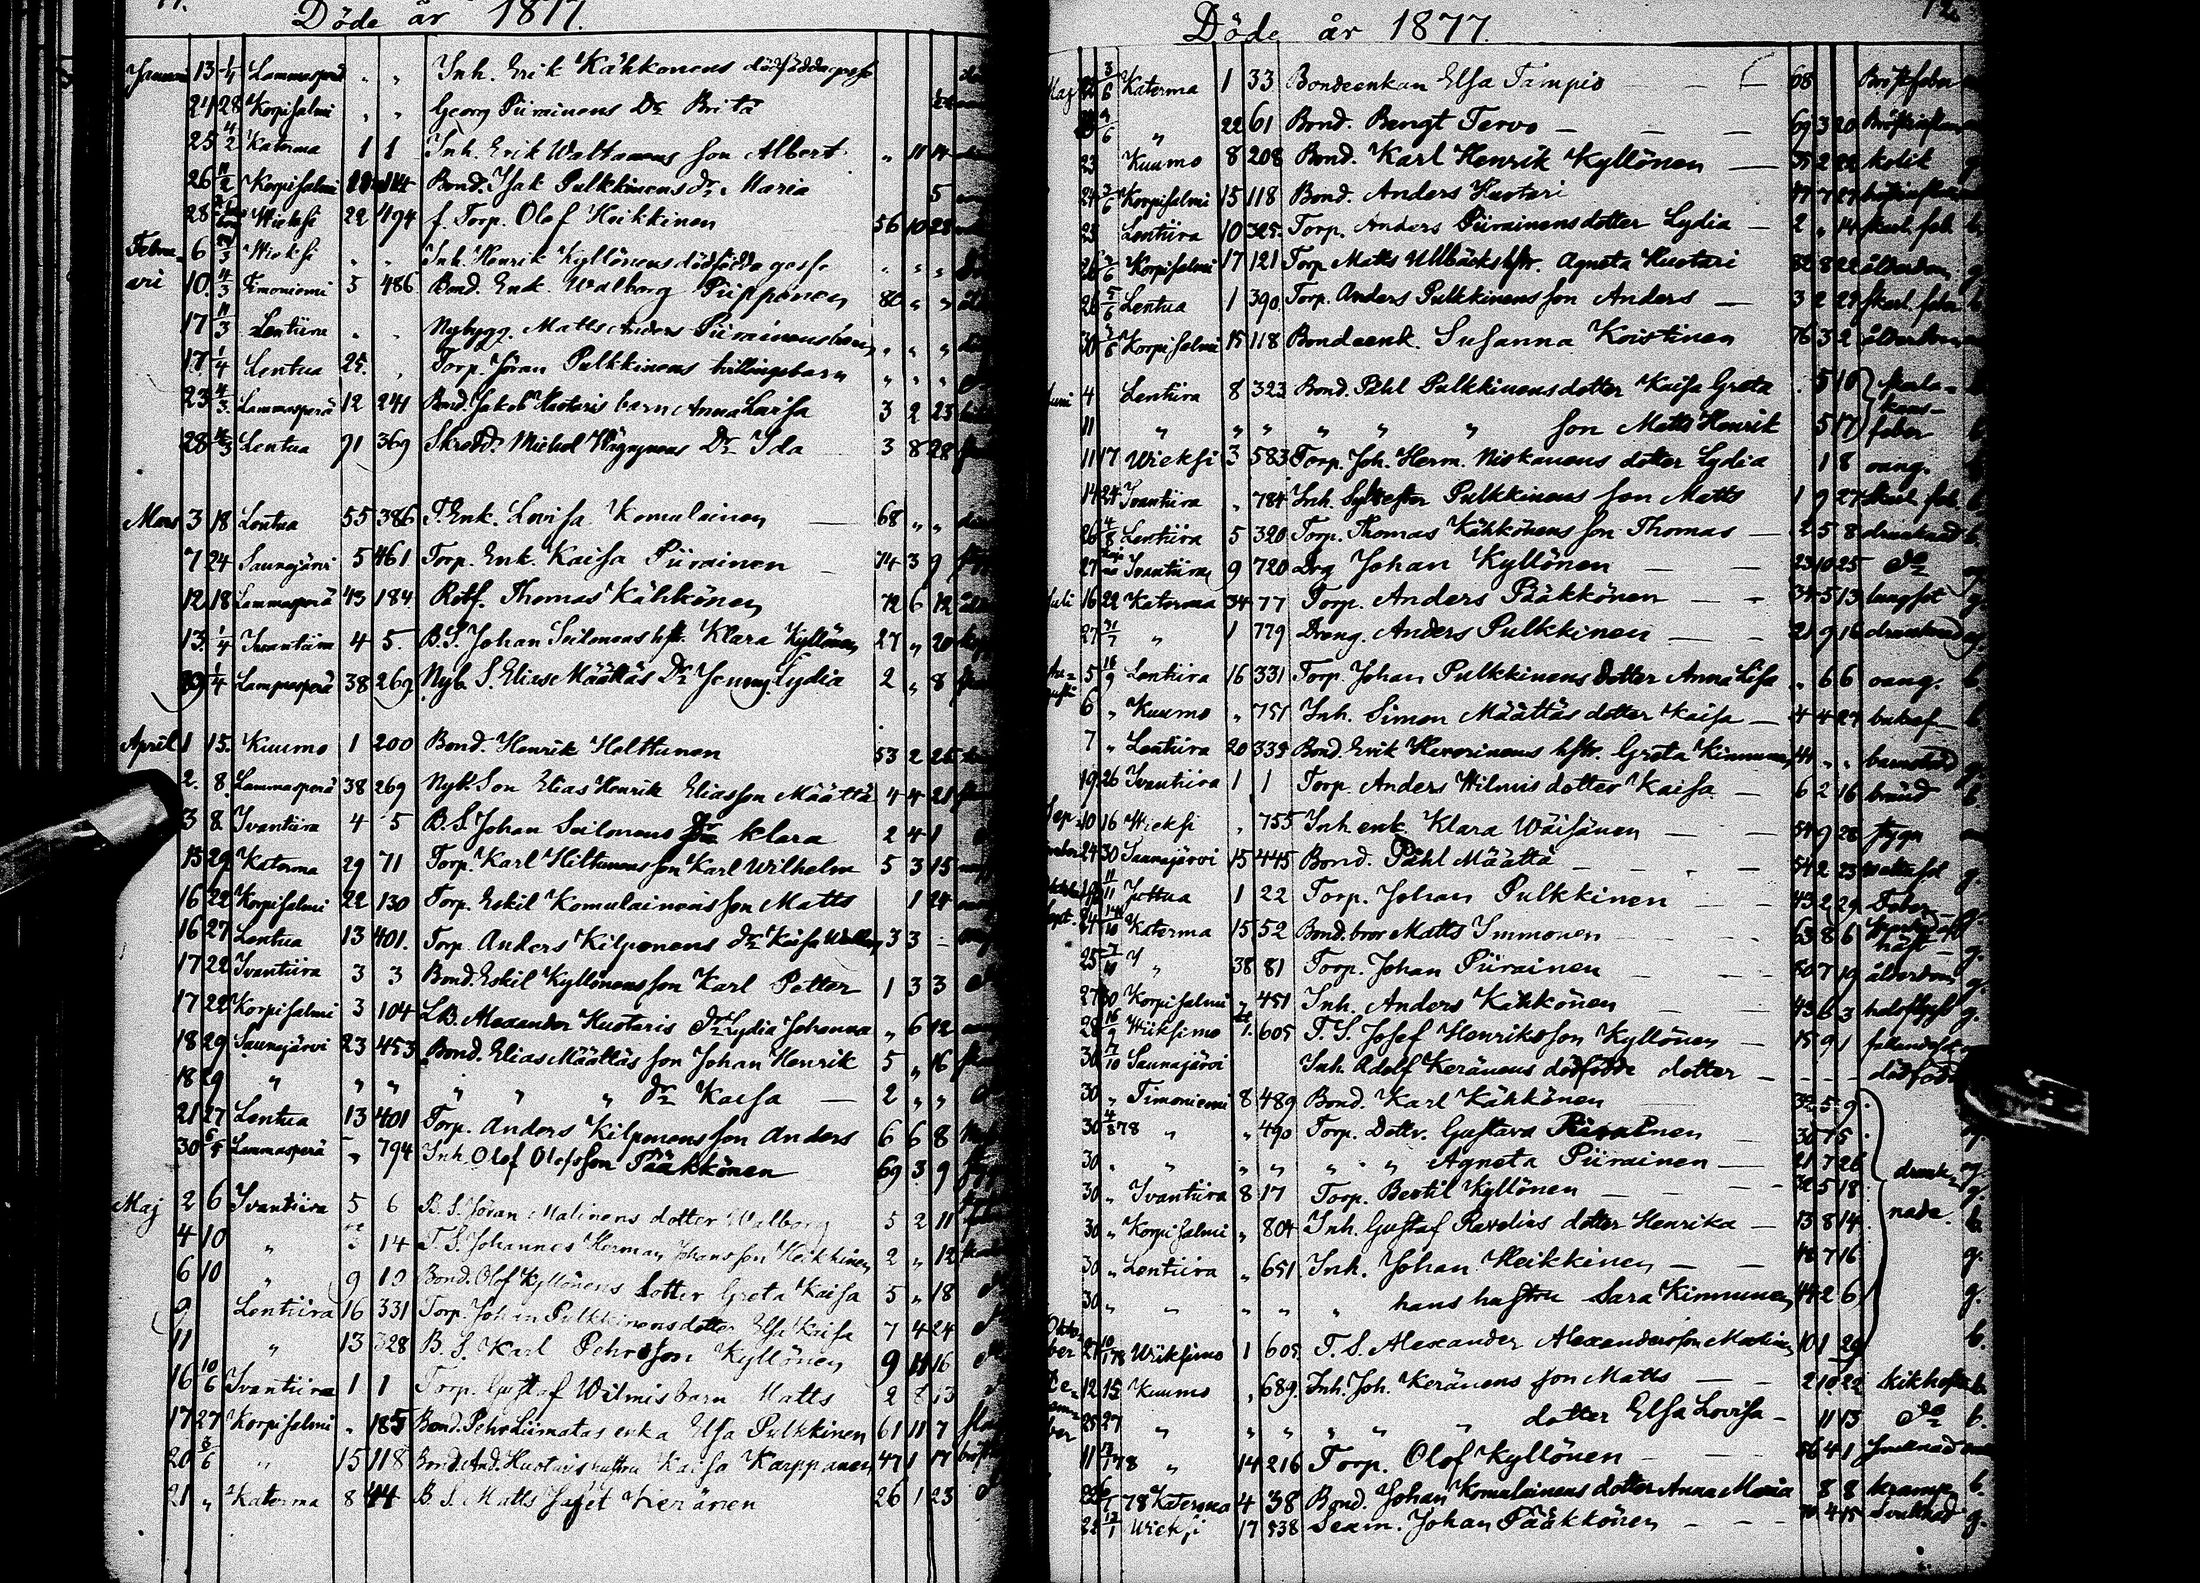 Döde år 1877.
Januari 13 1/4 Lammasperä " " Inh. Erik Kähkönens dödfödda gosse
24 28 Korpisalmi " " Georg Piirainens Dr Brita
25 4/2 Katerma 1 1 Inh. Erik Waltanens son Albert " 11 14
26 11/2 Korpisalmi 114 Bond. Isak Pulkkinens dr Maria 5
28 Wieksi 22 494 f. Torp. Olof Heikkinen 56 10 28
Februari 6 Wieksi " " Inh. Henrik Kyllönens dödfödda gosse " " "
10 4/3 Timoniemi 5 486 Bond. Enk. Walborg Piipponen 80 " "
17 11/3 Lentiira " " Nybygg. Matts Anders Piirainens barn " " "
17 1/4 Lentua 25 " Torp. Jöran Pulkkinens tvillingebarn " " "
23 4/3 Lammasperä 12 241 Bond. Jakob Huotaris barn Anna Lovisa 3 2 23
28 Lentua 91 369 Skredd. Michel Hägynens Dr Ida 3 8 28
Mars 3 18 Lentua 55 386 T. Enk. Lovisa Komulainen — 68 " "
7 24 Saunajärvi 5 461 Torp. Enk. Kaisa Piirainen — 74 3 9
12 18 Lammasperä 43 184 Rotf. Thomas Kähkönen 72 6 12
13 1/4 Iwantiira 4 5 B. S. Johan Seilonens hst. Klara Kyllönen 27 " 20
29 1/4 Lammasperä 38 269 Nyb. S. Eliase Määttäs Dr Jenny Lydia 2 " 8
April 1 15 Kuumo 1 200 Bond. Henrik Holttunen 53 2 25
2 8 Lammasperä 38 269 Nyb. Son Elias Henrik Eliasson Määttä 4 4 21
3 8 Ivantiira 4 5 B. S. Johan Seilonens Dr Klara 2 4 1
15 29 Katerma 29 71 Torp. Karl Hiltunens son Karl Wilhelm 5 3 15
16 22 Korpisalmi 22 130 Torp. Eskil Komulainens son Matts 1 24
16 27 Lentua 13 401 Torp. Anders Kilponens dr Kaisa 3 3 —
17 22 Ivantiira 3 3 Bond. Eskil Kyllönens son Karl Petter 1 3 3
17 22 Korpisalmi 3 104 L.B. Alexander Huotaris Dr Lydia Johanna " 6 12
18 29 Saunajärvi 23 453 Bond. Elias Määttäs son Johan Henrik 5 " 16
18 29 " " " " " " dr Kaisa — 2 " "
21 27 Lentua 13 401 Torp. Anders Kilponens son Anders 6 6 8
30 6/5 Lammasperä " 794 Inh. Olof Olofsson Pääkkönen 69 3 9
Maj 2 6 Ivantiira 5 6 B. S. Jöran Malinens dotter Walborg 5 2 11
4 10 " 3 14 T. S. Johannes Herman Johansson Heikkinen 2 " 12
6 10 " 9 10 Bond. Olof Kyllönens dotter Greta Kaisa 5 " 18
9 Lentiira 16 331 Torp. Johan Pulkkinens dotter Elsa Kaisa 7 4 24
11 " 13 328 B. S. Karl Pehrsson Kyllönen 9 11 16
16 10/6 Ivantiira 1 1 Torp. Gustaf Wilmis barn Matts 2 8 13
17 27 Korpisalmi " 185 Bond. Pehr Liimatas enka Elsa Pulkkinen 61 11 7
20 3/6 " 15 118 Bond. And. Huotaris hustru Kaisa Karppanen 47 1 17
21 " Katerma 8 44 B. S. Matts Keränen 26 1 23
Döde år 1877.
Maj 22 3/6 Katerma 1 33 Bondeenkan Elsa Tampio — — 68 Bröstfeber
" 22 61 Bond. Bengt Tervo — — — 69 3 20
23 Kuumo 8 208 Bond. Karl Henrik Kyllönen — 2 22 kolik g.
24 Korpisalmi 15 118 Bond. Anders Huotari 47 7 27
25 Lentiira 10 325 Torp. Anders Piirainens dotter Lydia — 2 " 14 skarl. feb. b.
26 Korpisalmi 17 121 Torp Matts Ullbäcks hstr. Agneta Huotari 82 8 22 ålderdom g.
26 5/6 Lentua 1 390 Torp. Anders Pulkkinens son Anders — 3 2 29 skarl. feber b.
30 Korpisalmi 15 118 Bondeenk. Susanna Koistinen 76 3 2 ålderdom
Juni 4 Lentiira 8 323 Bond. Påhl Pulkkinens dotter Kaisa Greta " 5 10 skarla-
11 " " " " " " son Matts Henrik 5 17 kans-feber b.
11 17 Wieksi 3 583 Torp. Joh. Herm. Niskanens dotter Lydia 1 8 oang. b.
14 24 Ivantiira " 784 Inh. Sylvester Pulkkinens son Matts 1 9 27 skarl. feb. b.
26 4/8 Lentiira 5 320 Torp. Thomas Kähkönens son Thomas — 2 5 8 drunknad b.
27 Ivantiira 9 720 Drg Johan Kyllönen — — 23 10 25 Do
Juli 16 22 Katerma 34 77 Torp. Anders Pääkkönen — — 34 5 13 lungsot g.
27 " 1 779 Dreng. Anders Pulkkinen — — 21 9 16 drunknad og.
Augusti 5 16/9 Lentiira 16 331 Torp. Johan Pulkkinens dotter Anna Lisa " 6 6 oang. b.
6 " Kuumo " 751 Inh. Simon Määttäs dotter Kaisa — 4 4 27 bukref b.
7 " Lentiira 20 339 Bond. Erik Haverinens hstr. Greta Kinnunen 44 " " barnsbörd g.
19 26 Ivantiira 1 1 Torp. Anders Wilmis dotter Kaisa — 6 2 16 bränd b.
September 10 16 Wieksi " 755 Inh enk. Klara Wäisänen — — 54 9 28 stygn
24 30 Saunajärvi 15 445 Bond. Påhl Määttä — — 54 2 23 vattusot g.
11/11 Juttua 1 22 Torp. Johan Pulkkinen — — 43 2 29 Feber g.
Sept. 24 Katerma 15 52 Bond. bror Matts Immonen — — 63 8 6
25 " 38 81 Torp. Johan Piirainen — — 80 7 19 ålderdom g.
27 30 Korpisalmi " 451 Inh. Anders Kähkönen — — 43 6 3 g.
28 Wieksimo 1 605 T. S. Josef Henriksson Kyllönen — 15 9 1
30 7/10 Saunajärvi Inh. Adolf Keränens dödfödda dotter — — — dödfödd
30 " Timoniemi 8 489 Bond. Karl Kähkönen — 32 5 9
30 4/8 78 " " 490 Torp. Dottr. Gustava Piirainen — 30 7 5
30 " " " " " " Agneta Piirainen — 21 7 26 drunk- og.
30 " Ivantiira 8 17 Torp. Bertil Kyllönen — — 32 5 18 g.
30 " Korpisalmi " 804 Inh. Gustaf Ravelins dotter Henrika — 13 8 14 nade. b.
30 " Lentiira " 651 Inh. Johan Heikkinen — — 48 7 16 g.
30 " " " " " hans hustru Sara Kinnunen 44 2 6 g.
Oktober 21 Wieksimo 1 605 T. S. Alexander Alexandersson 10 1 29 b.
December 12 15 Kuumo " 689 Inh. Joh. Keränens son Matts — — 2 10 22 kikhosta b.
25 27 " " " " " " dotter Elsa Lovisa — 11 13 Do b.
11 78 " 14 216 Torp. Olof Kyllönen — — 56 4 1
22 78 Katerma 4 38 Bond. Johan Komulainens dotter Anna Maria 8 8 kramp b.
22 13/1 Wieksi 17 538 Sexm. Johan Pääkkönen — — 70 4 15 g.